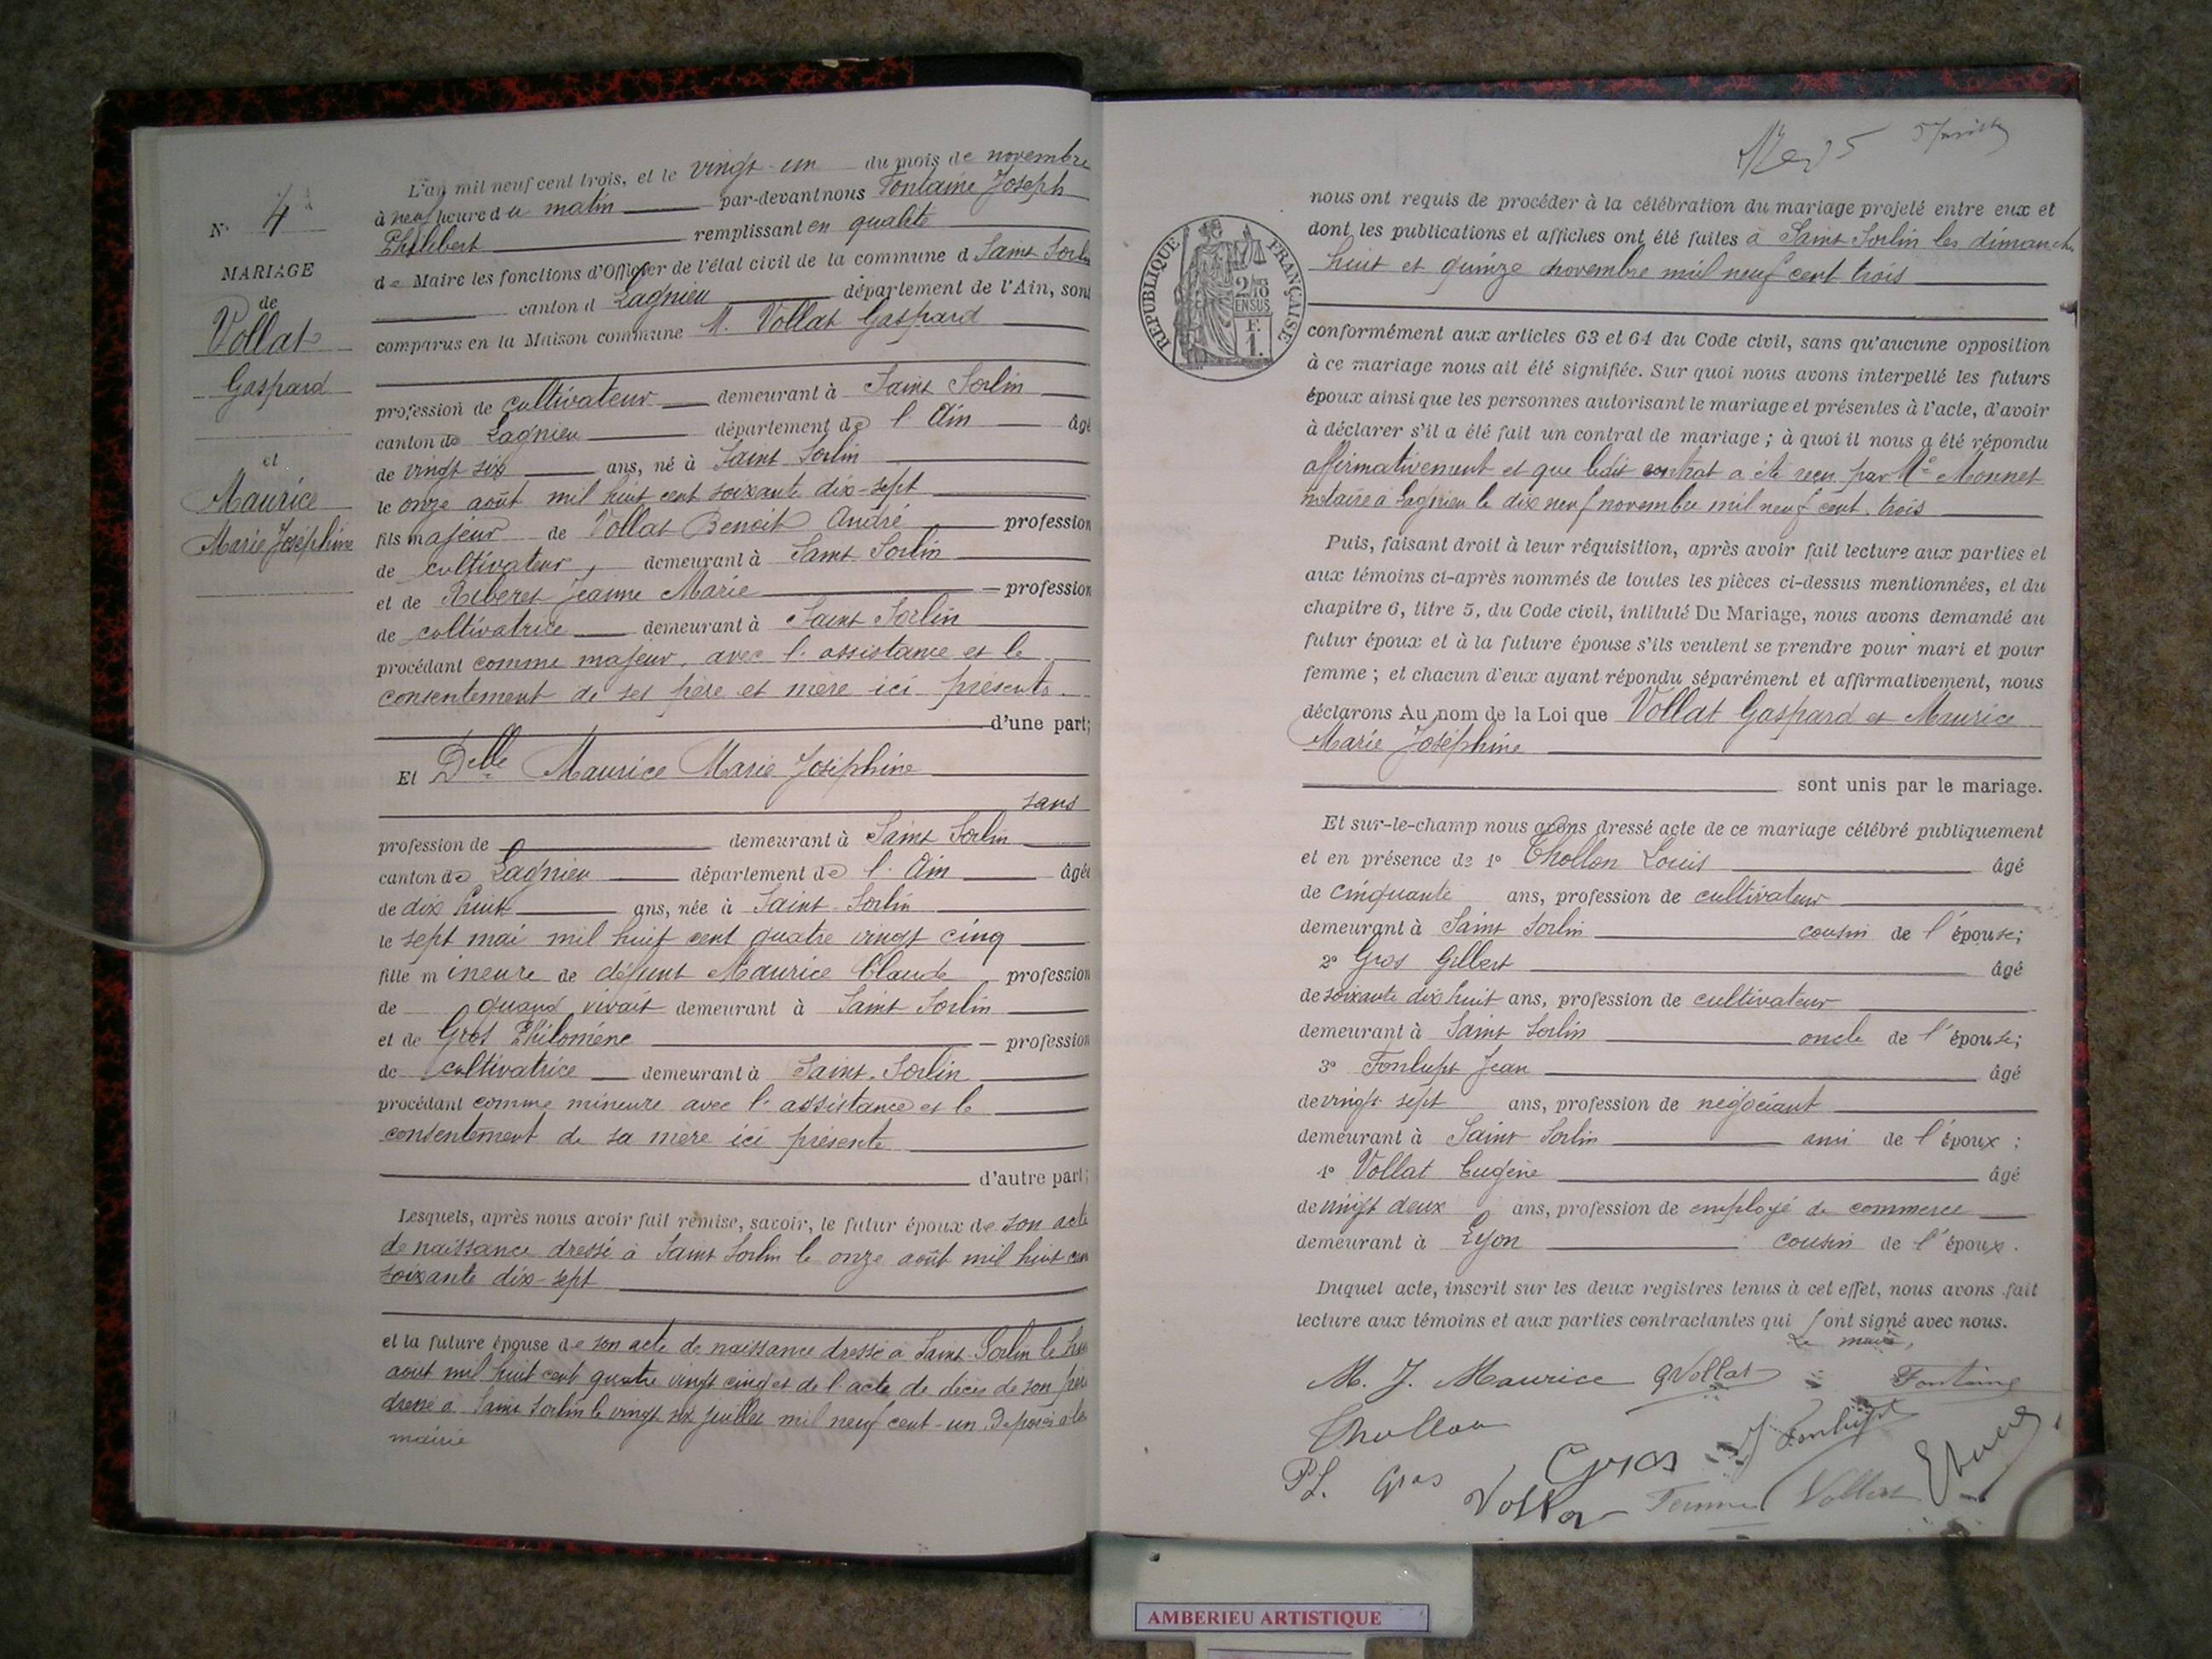 N° 4
MARIAGE
de
Vollat
Gaspard
et
Maurice
Marie Joséphine
L'an mil neuf cent trois, et le vingt-un du mois de novembre
à neuf heure du matin par-devant nous Fontaine Joseph
Philibert remplissant en qualité
de Maire les fonctions d'Officier de l'état civil de la commune d Saint Sorlin
canton d Lagnieu département de l'Ain, sont
comparus en la Maison commune M. Vollat Gaspard
profession de cultivateur demeurant à Saint Sorlin
canton de Lagnieu département de l'Ain âgé
de vingt six ans, né à Saint Sorlin
le onze août mil huit cent soixante dix-sept
fils majeur de Vollat Benoit André profession
de cultivateur, demeurant à Saint Sorlin
et de Riberet Jeanne Marie profession
de cultivatrice demeurant à Saint Sorlin
procédant comme majeur, avec l'assistance et le
consentement de ses père et mère ici présents
d'une part;
Et Delle Maurice Marie Joséphine
sans
profession de demeurant à Saint Sorlin
canton de Lagnieu département de l'Ain âgée
de dix huit ans, née à Saint Sorlin
le sept mai mil huit cent quatre vingt cinq
fille mineure de défunt Maurice Claude profession
de quand vivait demeurant à Saint Sorlin
et de Gros Philomène profession
de cultivatrice demeurant à Saint-Sorlin
procédant comme mineure avec l'assistance et le
consentement de sa mère ici présente
d'autre part;
Lesquels, après nous avoir fait remise, savoir, le futur époux de son acte
de naissance dressé à Saint Sorlin le onze août mil huit cent
soixante dix-sept
et la future épouse de son acte de naissance dressé à Saint-Sorlin le
août mil huit cent quatre vingt cinq et de l'acte de décès de son père
dressé à Saint Sorlin le vingt six juillet mil neuf cent-un. Déposés à la
mairie
REPUBLIQUE FRANÇAISE
2/10
EN SUS
F.
1.
nous ont requis de procéder à la célébration du mariage projeté entre eux et
dont les publications et affiches ont été faites à Saint Sorlin les dimanches
huit et quinze novembre mil neuf cent trois
conformément aux articles 63 et 64 du Code civil, sans qu'aucune opposition
à ce mariage nous ait été signifiée. Sur quoi nous avons interpellé les futurs
époux ainsi que les personnes autorisant le mariage et présentes à l'acte, d'avoir
à déclarer s'il a été fait un contrat de mariage ; à quoi il nous a été répondu
affirmativement et que ledit contrat a été reçu par Me Monnet
notaire à Lagnieu le dix neuf novembre mil neuf cent trois
Puis, faisant droit à leur réquisition, après avoir fait lecture aux parties et
aux témoins ci-après nommés de toutes les pièces ci-dessus mentionnées, et du
chapitre 6, titre 5, du Code civil, intitulé Du Mariage, nous avons demandé au
futur époux et à la future épouse s'ils veulent se prendre pour mari et pour
femme ; et chacun d'eux ayant répondu séparément et affirmativement, nous
déclarons Au nom de la Loi que Vollat Gaspard et Maurice
Marie Joséphine
sont unis par le mariage.
Et sur-le-champ nous avons dressé acte de ce mariage célébré publiquement
et en présence de 1° Thollon Louis âgé
de cinquante ans, profession de cultivateur
demeurant à Saint Sorlin cousin de l'épouse;
2° Gros Gilbert âgé
de soixante dix huit ans, profession de cultivateur
demeurant à Saint Sorlin oncle de l'épouse;
3° Fonlupt Jean âgé
de vingt-sept ans, profession de négociant
demeurant à Saint Sorlin ami de l'époux ;
4° Vollat Eugène âgé
de vingt deux ans, profession de employé de commerce
demeurant à Lyon cousin de l'époux.
Duquel acte, inscrit sur les deux registres tenus à cet effet, nous avons fait
lecture aux témoins et aux parties contractantes qui ont signé avec nous.
Le maire,
M. J. Maurice G Vollat Fontaine
Thollon J. Fonlupt
PL. Gros Gros
Vollat Femme Vollat
AMBERIEU ARTISTIQUE